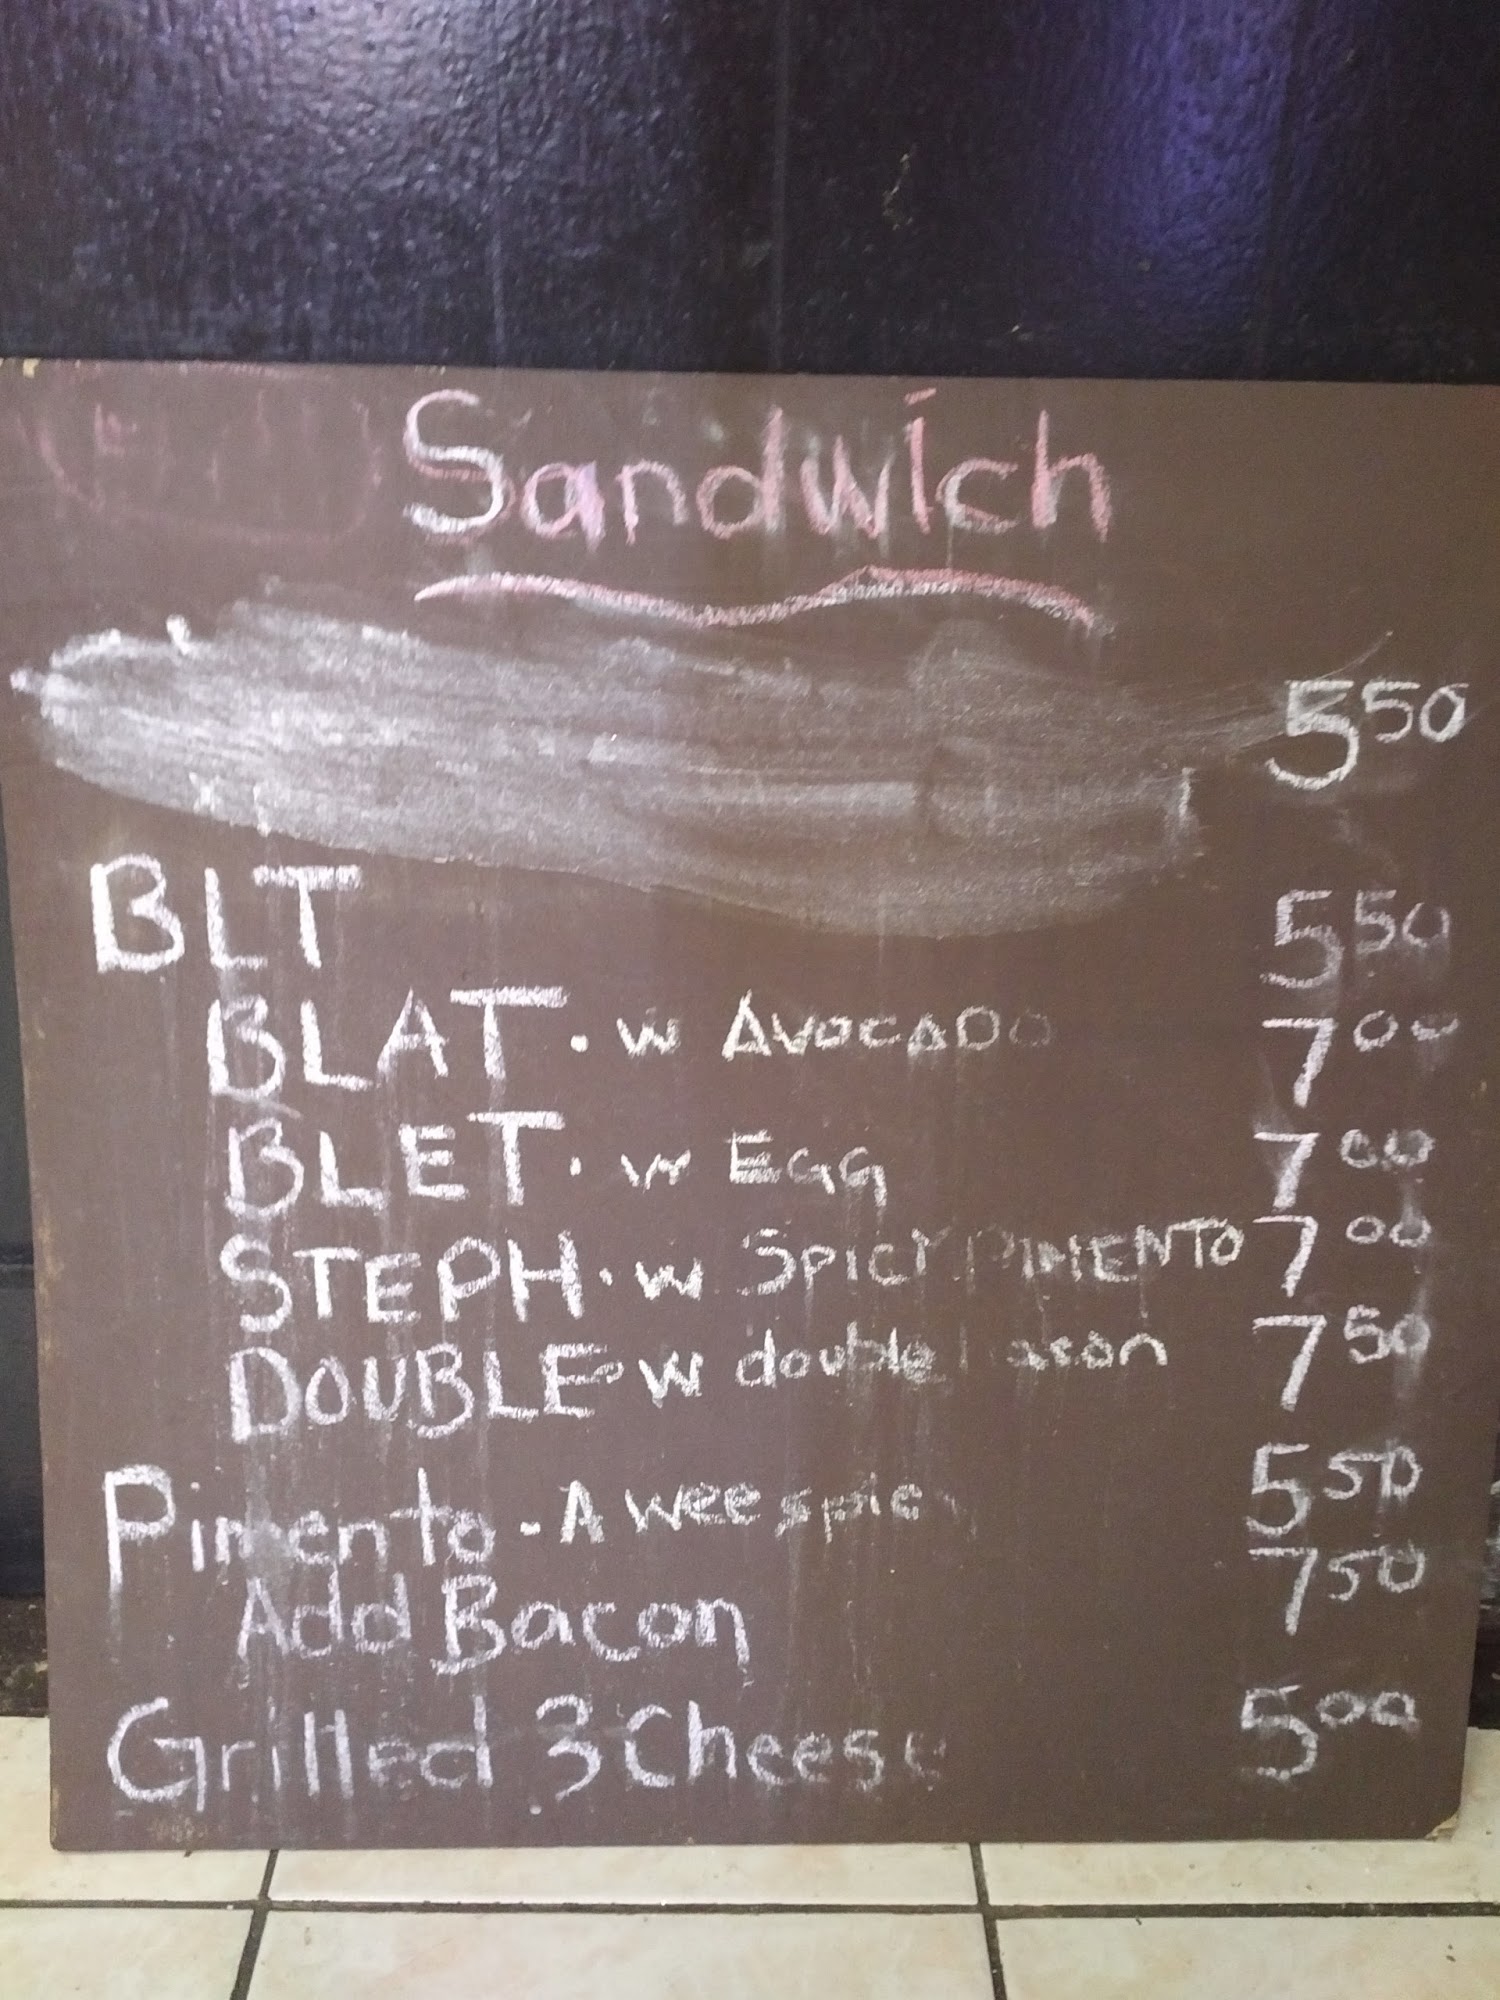 Sandwich
5 50
BLT 5 50
BLAT · w AVOCADO 7 00
BLET · w EGG 7 00
STEPH · w SPICY PIMENTO 7 00
DOUBLE w double 7 50
Pimento - A wee spicy 5 50
Add Bacon 7 50
Grilled 3 Cheese 5 00